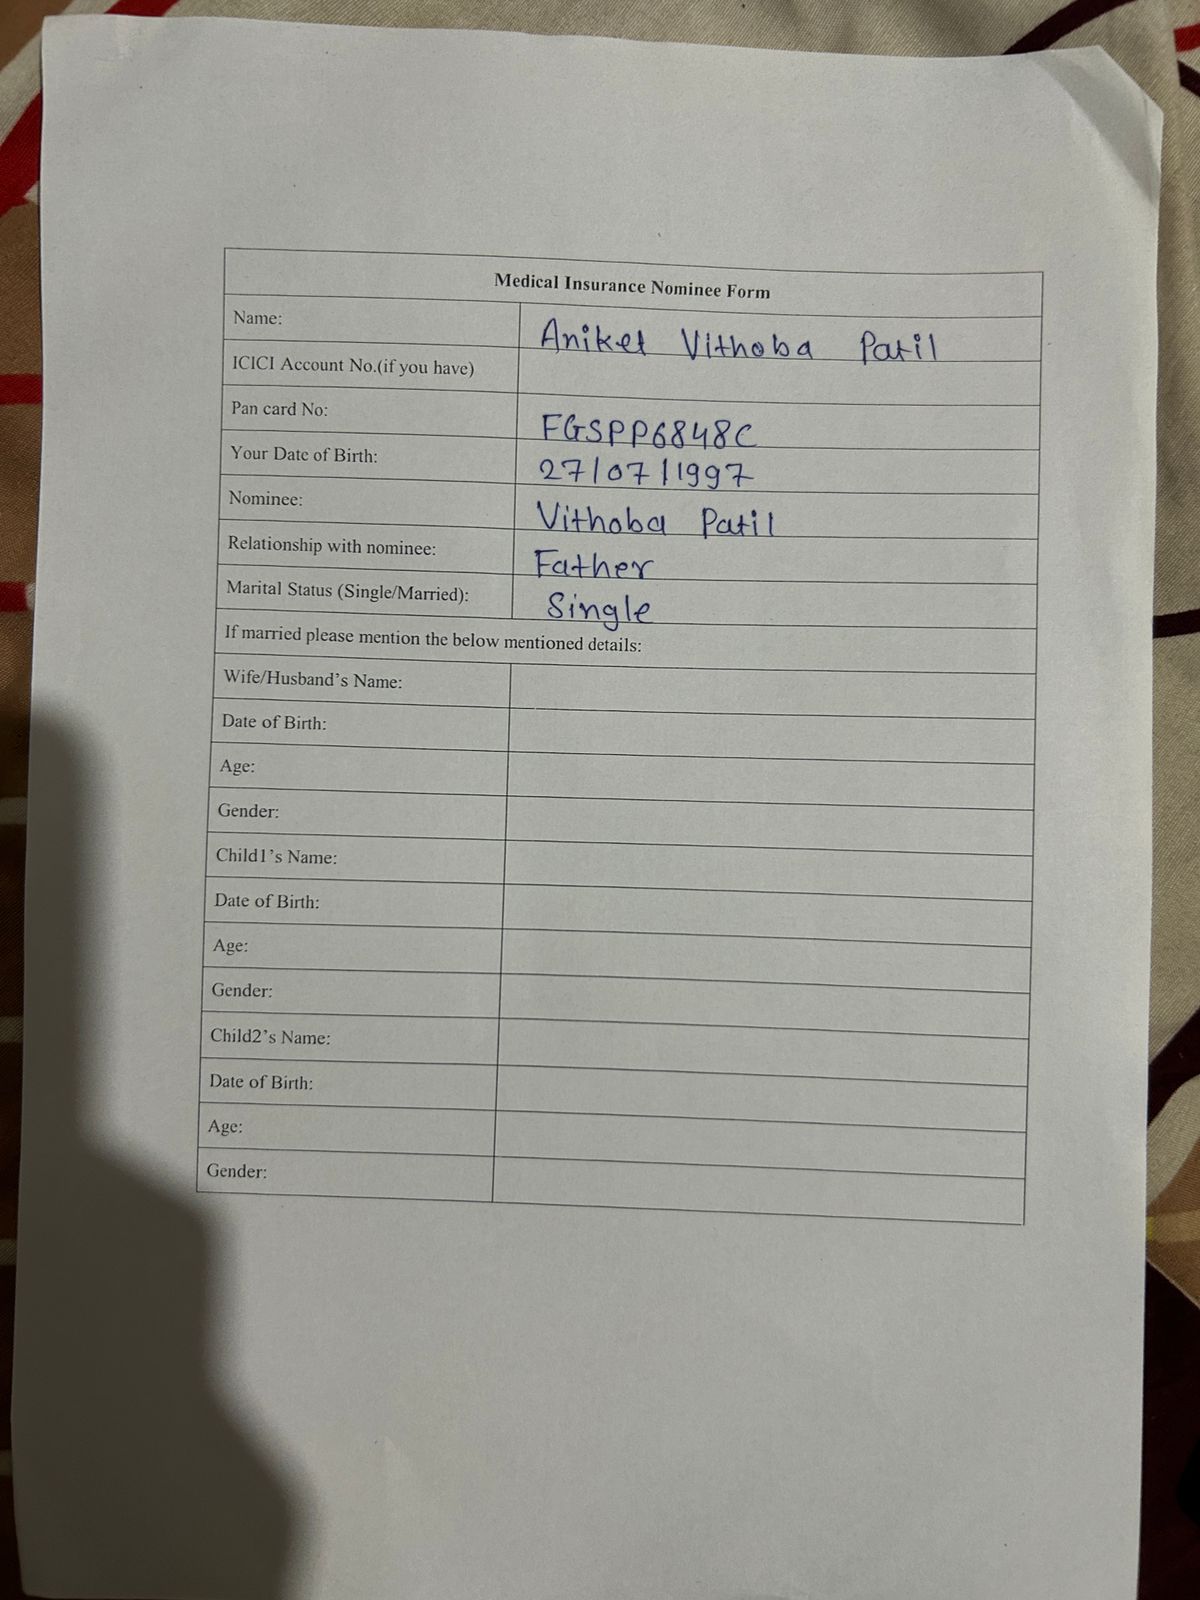 Medical Insurance Nominee Form
Name: Aniket Vithoba Patil
ICICI Account No.(if you have)
Pan card No: FGSPP6848C
Your Date of Birth: 27/07/1997
Nominee: Vithoba Patil
Relationship with nominee: Father
Marital Status (Single/Married): Single
If married please mention the below mentioned details:
Wife/Husband's Name:
Date of Birth:
Age:
Gender:
Child1's Name:
Date of Birth:
Age:
Gender:
Child2's Name:
Date of Birth:
Age:
Gender: